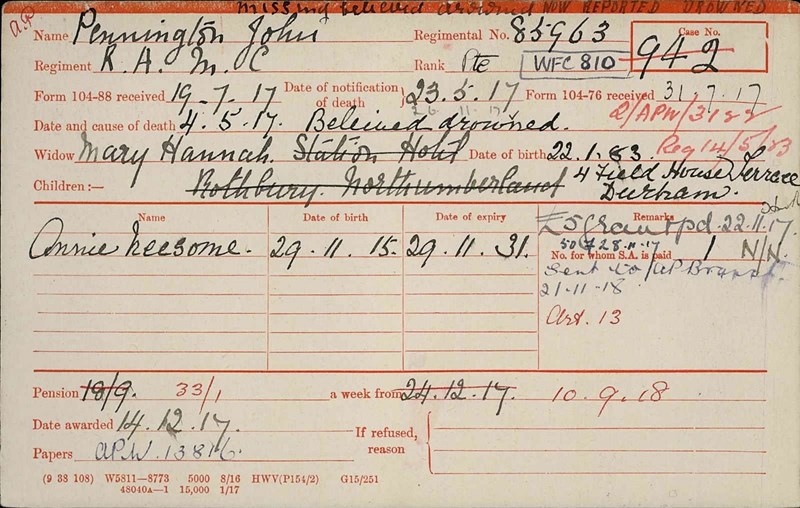 missing believed drowned NOW REPORTED DROWNED
A.P
Name Pennington John Regimental No. 85963 Case No. 942
Regiment R. A. M. C Rank Pte WFC 810
Form 104-88 received 19.7.17 Date of notification of death } 23.5.17 Form 104-76 received 31.7.17
26.11.17 2/APW/3122
Date and cause of death 4.5.17. Beleived drowned.
Widow Mary Hannah. Station Hotel Date of birth 22.1.83. Reg 14/5/23
Children:— Rothbury. Northumberland 4 Field House Terrace
Durham.
Name Date of birth Date of expiry Remarks
£5 grant pd. 22.11.17.
Annie Neesome. 29.11.15. 29.11.31. 28.11.17
No. for whom S.A. is paid 1 N/N.
Sent to
21-11-18.
Art. 13
Pension 18/9. 33/1 a week from 24.12.17. 10.9.18
Date awarded 14.12.17.
If refused, reason
Papers APW. 13816.
(9 38 108) W5811—8773 5000 8/16 HWV(P154/2) G15/251
48040A—1 15,000 1/17